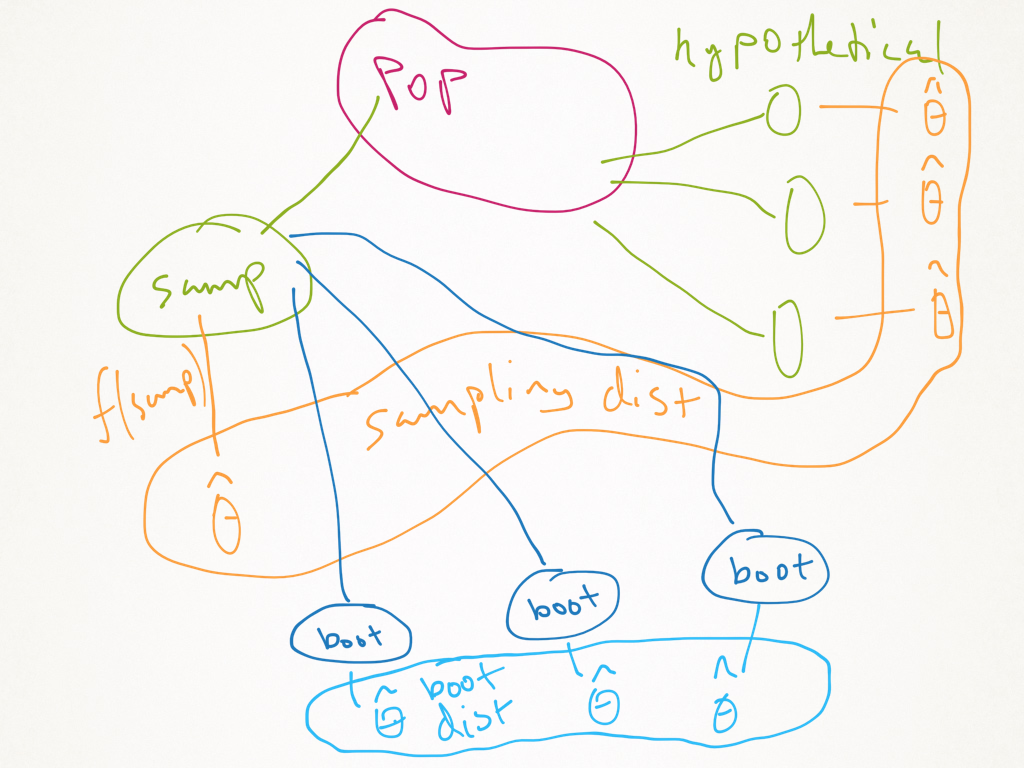 hypothetical
pop
θ̂
θ̂
samp
θ̂
f(samp)
sampling dist
θ̂
boot
boot
boot
θ̂ boot dist θ̂ θ̂